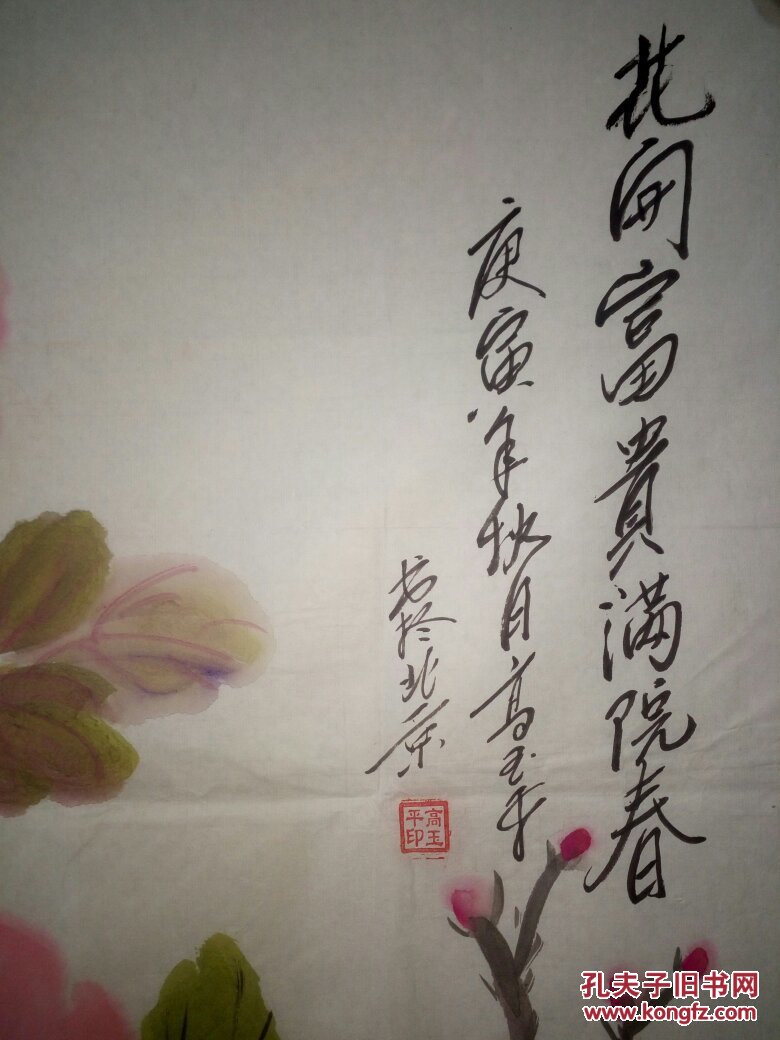 花開富貴满院春
庚寅年秋月高玉平
书於北京
高玉平印
孔夫子旧书网
www.kongfz.com